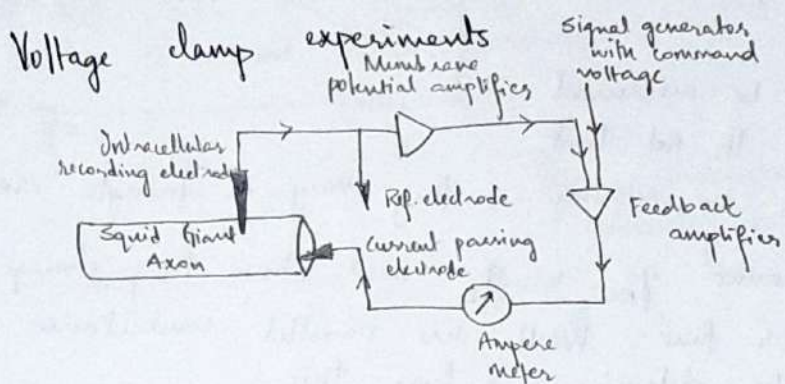 Voltage clamp experiments
Membrane
potential amplifier
Signal generator
with command
voltage
Intracellular
recording electrode
Ref. electrode
Squid Giant
Axon
Current passing
electrode
Feedback
amplifier
Ampere
meter